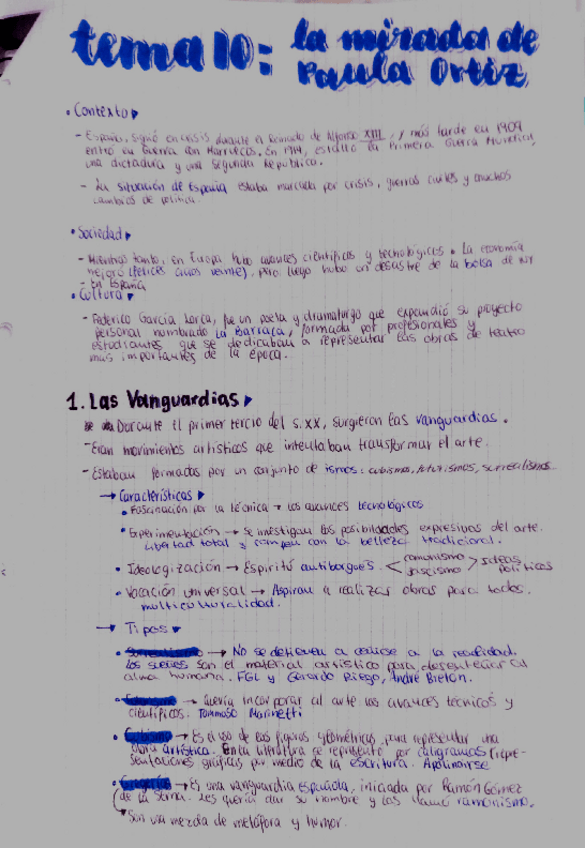 tema 10: la mirada de
Paula Ortiz
• Contexto
- España, siguió en crisis durante el Reinado de Alfonso XIII, y más tarde en 1909
entró en Guerra con Marruecos. En 1914, estalló la Primera Guerra Mundial,
una dictadura y una Segunda República.
- La situación de España estaba marcada por crisis, guerras civiles y muchos
cambios de política.
• Sociedad
- Mientras tanto, en Europa hubo avances científicos y tecnológicos. La economía
mejoró (felices años veinte), pero luego hubo un desastre de la bolsa de NY
- En España
• Cultura
- Federico García Lorca, fue un poeta y dramaturgo que expandió su proyecto
personal nombrado La Barraca, formada por profesionales y
estudiantes que se dedicaban a representar las obras de teatro
más importantes de la época.
1. Las Vanguardias
Durante el primer tercio del s.XX, surgieron las vanguardias.
- Eran movimientos artísticos que intentaban transformar el arte.
- Estaban formadas por un conjunto de ismos: cubismos, futurismos, surrealismos
→ Características
• Fascinación por la técnica → los avances tecnológicos
• Experimentación → Se investigan las posibilidades expresivas del arte.
Libertad total y rompen con la belleza tradicional.
• Ideologización → Espíritu antiburgués. < comunismo fascismo > ideas políticas
• Vocación universal → Aspiran a realizar obras para todos.
multiculturalidad.
→ Tipos
• Surrealismo → No se detienen a ceñirse a la realidad.
Los sueños son el material artístico para desentrañar al
alma humana. FGL y Gerardo Diego, André Breton.
• Futurismo → Quería incorporar al arte los avances técnicos y
científicos. Tommaso Marinetti
• Cubismo → Es el uso de las figuras geométricas, para representar una
obra artística. En la literatura se representó por caligramas (repre-
sentaciones gráficas por medio de la escritura. Apolinairse
• Greguerías → Es una vanguardia española, iniciada por Ramón Gómez
de la Serna. Les quería dar su nombre y las llamó ramonismo.
Son una mezcla de metáfora y humor.